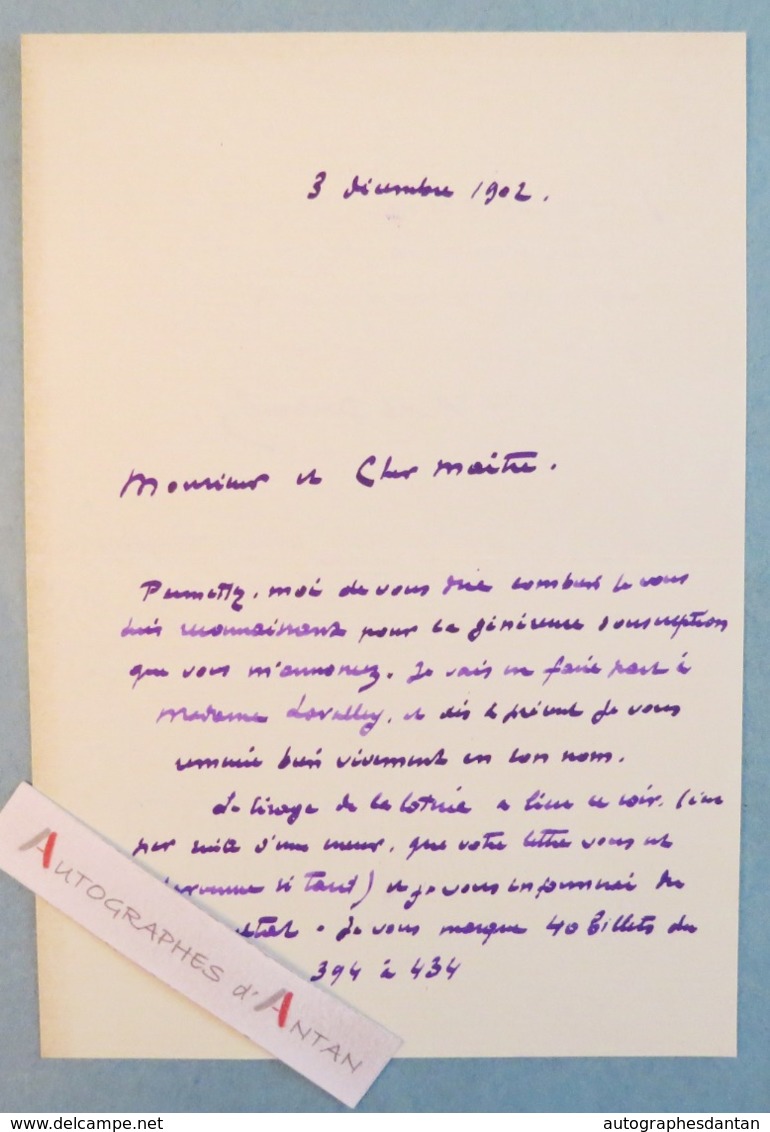 3 décembre 1902.
Monsieur et Cher Maître.
Permettez-moi de vous dire combien je vous
suis reconnaissant pour la généreuse souscription
que vous m'annoncez. Je vais en faire part à
Madame Lavalley, et dès à présent je vous
remercie bien vivement en son nom.
Le tirage de la loterie a lieu ce soir. (c'est
par suite d'une erreur, que votre lettre vous est
parvenue si tard) et je vous informerai du
résultat. Je vous marque 40 billets du
394 à 434
AUTOGRAPHES d'ANTAN
www.delcampe.net
autographesdantan